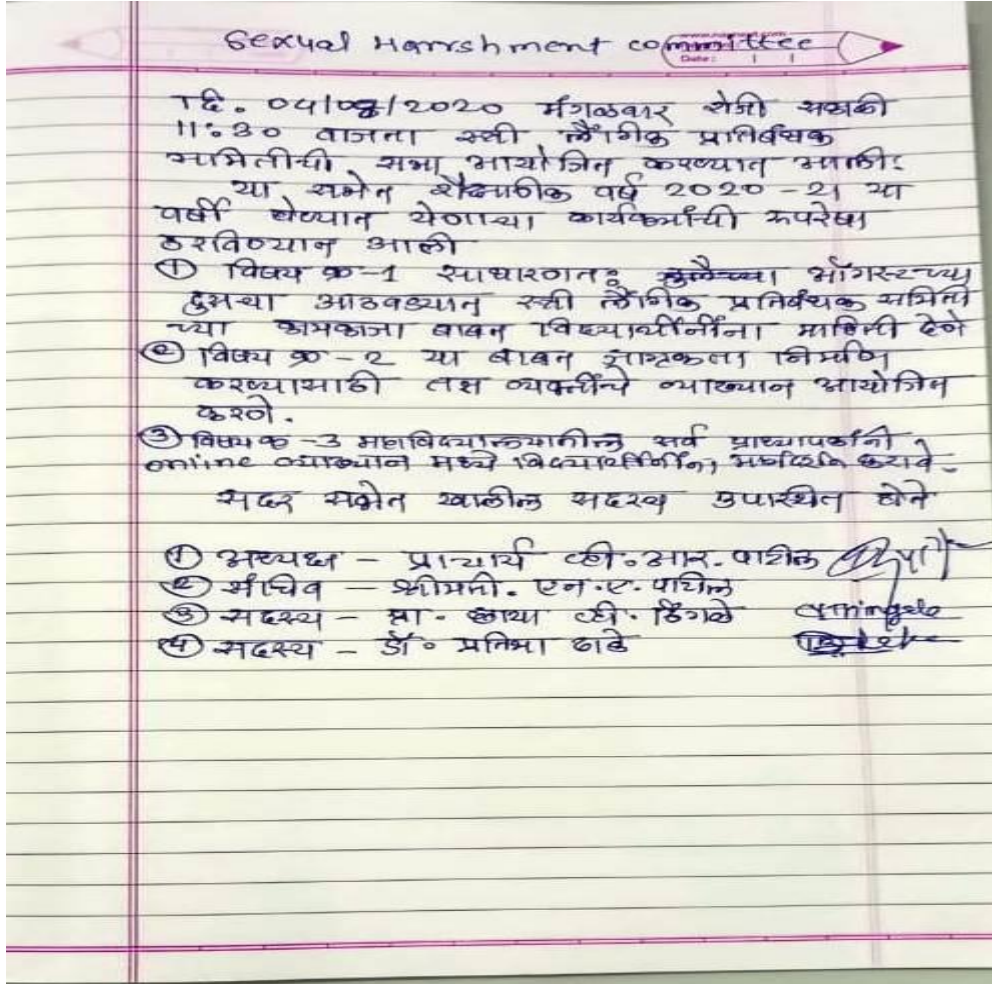 Sexual Harrshment committee
Date:
दि. 04/08/2020 मंगळवार रोजी सकाळी
11:30 वाजता स्त्री लैंगीक प्रतिबंधक
समितीची सभा आयोजित करण्यात आली.
या सभेत शैक्षणीक वर्ष 2020-21 या
वर्षी घेण्यात येणाऱ्या कार्यक्रमांची रूपरेषा
ठरविण्यात आली
① विषय क्र-1 साधारणतः ऑगस्टच्या
दुसऱ्या आठवड्यात स्त्री लैंगिक प्रतिबंधक समिती
च्या कामकाजा बाबत विद्यार्थीनींना माहिती देणे
② विषय क्र-2 या बाबत जागृकता निर्माण
करण्यासाठी तज्ञ व्यक्तींचे व्याख्यान आयोजित
करणे.
③ विषय क्र-3 महाविद्यालयातील सर्व प्राध्यापकांनी
online व्याख्यान मध्ये विद्यार्थीनींना मार्गदर्शन करावे.
सदर सभेत खालील सदस्य उपस्थित होते
① अध्यक्ष - प्राचार्य व्ही. आर. पाटील
② सचिव - श्रीमती. एन. ए. पाटील
③ सदस्य - प्रा. छाया व्ही. हिंगले
④ सदस्य - डॉ. प्रतिभा ढाके